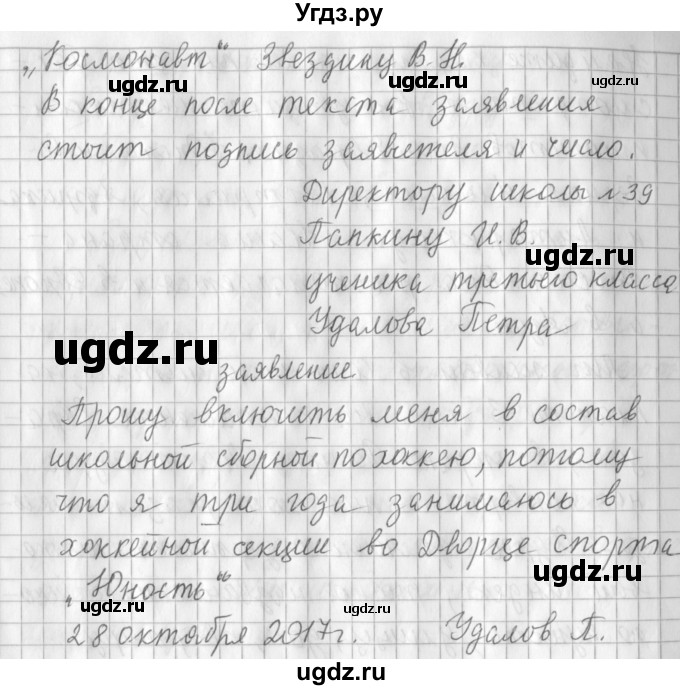 Угдз.ру
„Космонавт“ Звездину В.Н.
ugdz.ru ugdz.ru
В конце после текста заявления
стоит подпись заявителя и число.
Директору школы №39
Папкину И.В.
ugdz.ru
ученика третьего класса
Удалова Петра
ugdz.ru
заявление.
Прошу включить меня в состав
школьной сборной по хоккею, потому
что я три года занимаюсь в
хоккейной секции во Дворце спорта
ugdz.ru
„Юность“
ugdz.ru ugdz.ru
28 октября 2017г. Удалов П.
ugdz.ru